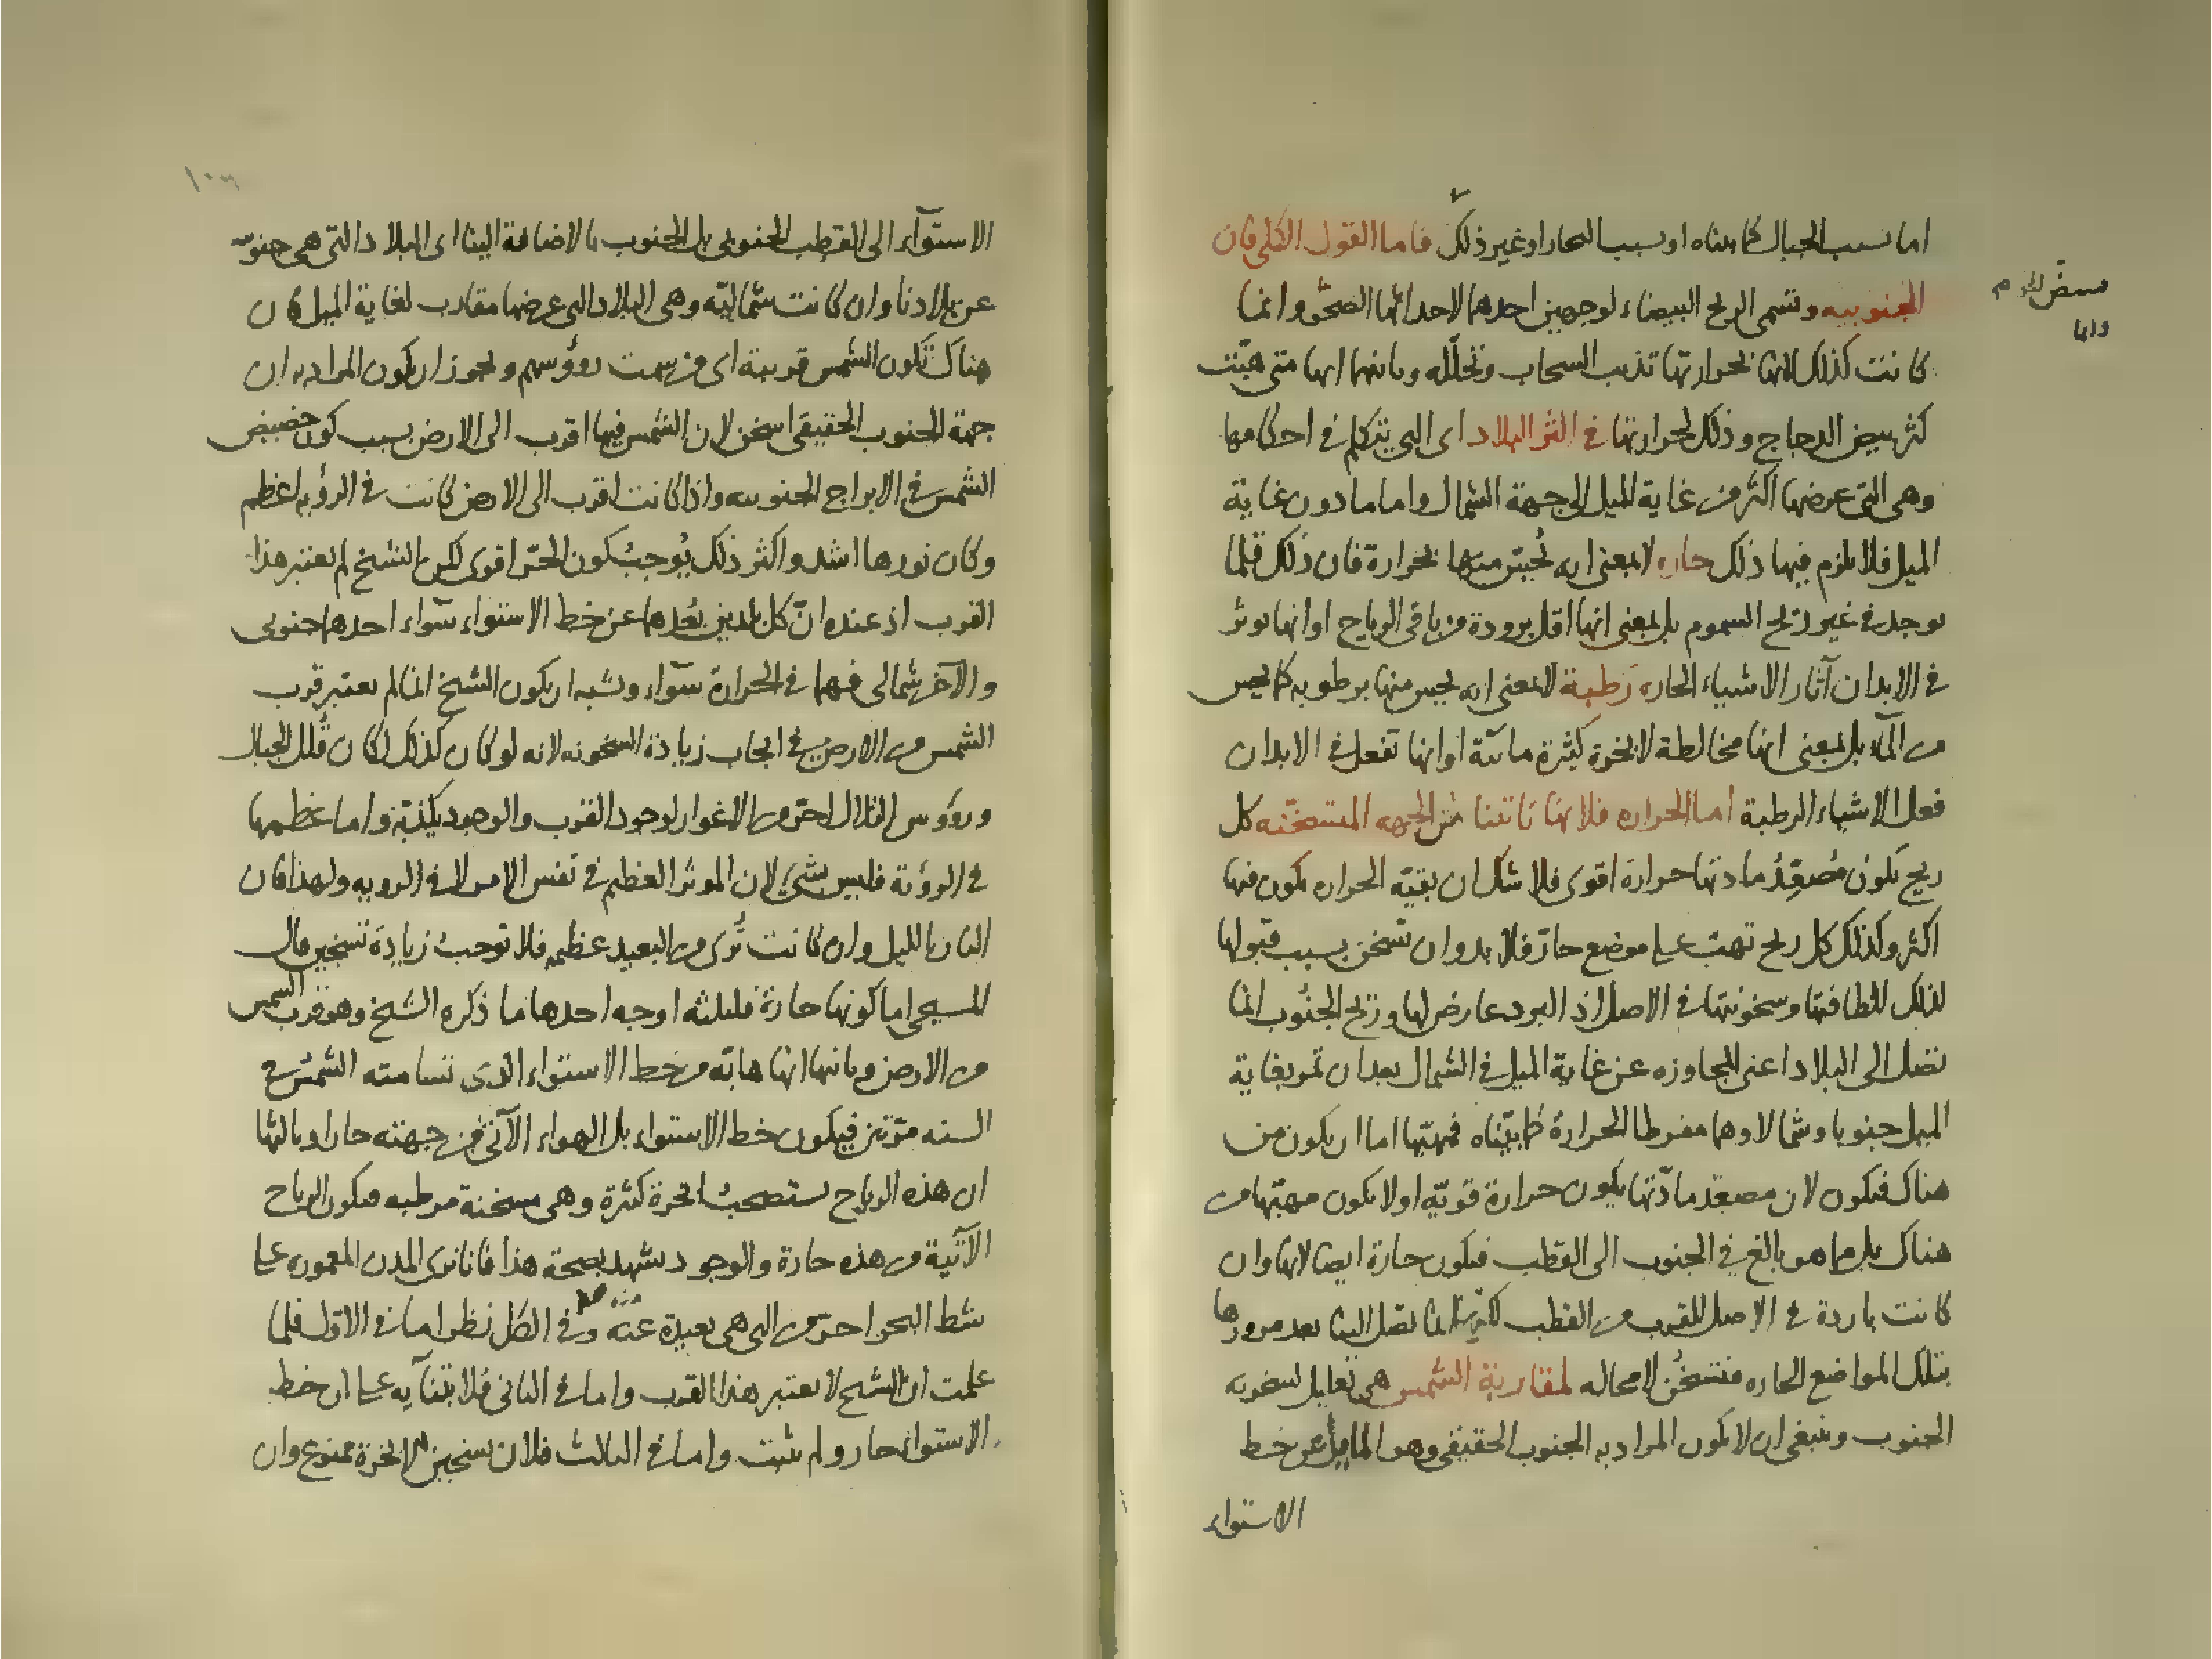 اما بسبب الجبال كما بيناه او بسبب البحار او غير ذلك فاما القول الكلى فان
الجنوبيه وتسمى الريح البيضاء لوجهين احدهما لاحداثها الصحو وانما
كانت كذلك لانها بحرارتها تذيب السحاب وتحلّله وثانيهما انها متى هبّت
كثر بيض الدجاج وذلك لحرارتها فى اكثر البلاد اى التى يتكلم فى احكامها
وهى التى عرضها اكثر من غاية الميل الى جهة الشمال واما ما دون غاية
الميل فلا يلزم فيها ذلك حاره لا بمعنى انه يُحسّ منها بحرارة فان ذلك قلما
يوجد فى غير ريح السموم بل بمعنى انها اقل برودة من باقى الرياح او انها توثر
فى الابدان آثار الاشياء الحاره رطبة لا بمعنى انه يحس منها برطوبه كما يحس
من المآء بل بمعنى انها مخالطة لابخرة كثيرة مائية او انها تفعل فى الابدان
فعل الاشياء الرطبة اما الحراره فلانها تاتينا من الجهه المتسخنه كل
ريح تكون مُصعِّدُ مادتها حرارة اقوى فلا شك ان بقيّه الحراره تكون فيها
اكثر وكذلك كل ريح تهبّ على موضع حارّ فلا بد وان تسخن بسبب قبولها
لذلك للطافتها وسخونتها فى الاصل اذ البرد عارض لها وريح الجنوب انما
تصل الى البلاد اعنى المجاوزه عن غاية الميل فى الشمال بعد ان تمر بغاية
الميل جنوبا وشمالا وهما مفرطا الحرارة كما بيّناه فمهبّها اما ان يكون من
هناك فيكون لان مصعّد مادّتها يكون حرارة قويّه او لا يكون مهبّها من
هناك بل مما هو بالغ فى الجنوب الى القطب فيكون حارة ايضا لانها وان
كانت باردة فى الاصل للقرب من القطب لكنها انما تصل الينا بعد مرورها
بتلك المواضع الحاره فتتسخّن لا محاله لمقاربة الشمس هى تعليل لسخونه
الجنوب وينبغى ان لا يكون المراد به الجنوب الحقيقى وهو المايل عن خط
الاستواء
وانما
١٠٣
الاستوآء الى القطب الجنوبى بل الجنوب بالاضافة الينا اى البلاد التى هى جنوبيّه
عن بلادنا وان كانت شماليّه وهى البلاد التى عرضها مقارب لغاية الميل فان
هناك تكون الشمس قريبة اى من سمت روؤسهم ويجوز ان يكون المراد به ان
جهة الجنوب الحقيقى اسخن لان الشمس فيها اقرب الى الارض بسبب كون حضيض
الشمس فى الابراج الجنوبيه واذا كانت اقرب الى الارض كانت فى الرؤيه اعظم
وكان نورها اشد واكثر ذلك يُوجبُ كون الحرّ اقوى لكن الشيخ لم يعتبر هذا
القرب اذ عنده انّ كل بلدين بُعدهما عن خط الاستواء سوآء احدهما جنوبى
والآخر شمالى فهما فى الحرارة سوآء ويشبه ان يكون الشيخ انما لم يعتبر قرب
الشمس من الارض فى ايجاب زيادة السخونه لانه لو كان كذلك لكان قُلل الجبال
وروؤس التلال احرّ من الاغوار لوجود القرب والوجود يكذبّه واما عظمها
فى الروؤية فليس بشئ لان الموثر العظيم فى نفس الامر لا فى الرويه ولهذا فان
النار بالليل وان كانت تُرى من البعيد عظيمه فلا توجبُ زيادة تسخين قال
المسيحى اما كونها حارة فلثلثه اوجه احدها ما ذكره الشيخ وهو قرب الشمس
من الارض وثانيها انها هابّه من خط الاستواء الذى تسامته الشمس فى
السنه مرّتين فيكون خط الاستواء بل الهواء الآتى من جهته حارا وثالثها
ان هذه الرياح تستصحبُ ابخرة كثيرة وهى مسخنة مرطبه فيكون الرياح
الآتية من هذه حارة والوجود يشهد بصحة هذا فانا نرى المدن المعموره على
شط البحر احرّ من التى هى بعيدة عنه وفى الكل نظر اما فى الاول فلما
علمت ان الشيخ لا يعتبر هذا القرب واما فى الثانى فلابتنآيه على ان خط
الاستواء حار ولم يثبت واما فى الثالث فلان تسخين الابخرة ممنوع وان